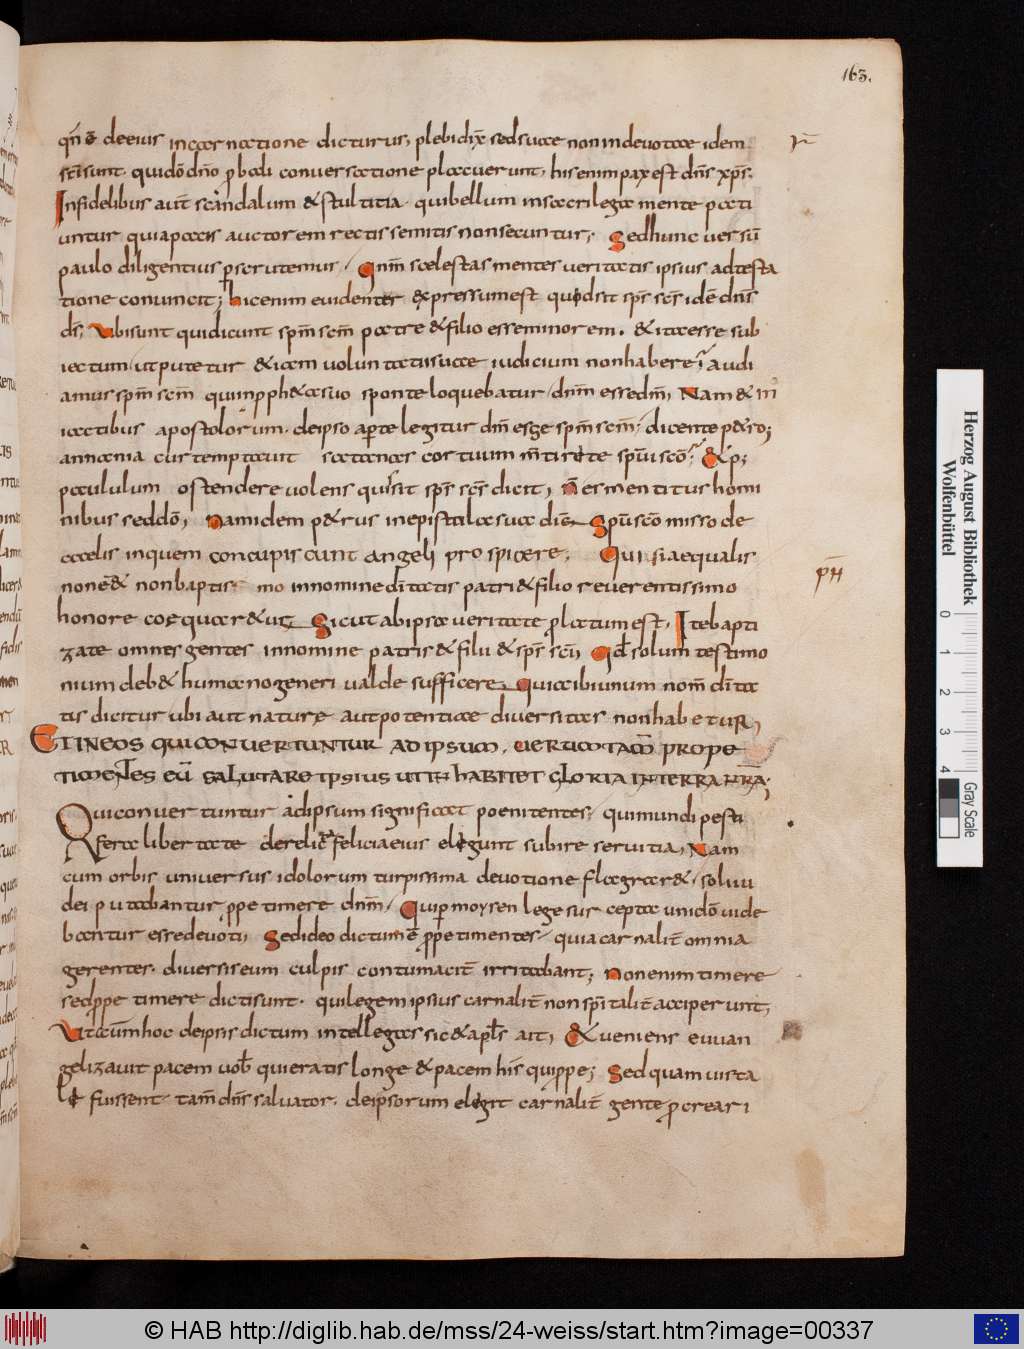 163.
qn̄ ē deeius incarnatione dicturus, plebidix̄ sed suae non indevotae idem
sc̄i sunt. qui dō dn̄o probabili conversatione placuerunt, his enim pax est dn̄s xp̄s.
Infidelibus aut̄ scandalum & stultitia. qui bellum in sacrilega mente pati
untur quia pacis auctorem rectis semitis non secuntur; Sed hunc versū
paulo diligentius perscrutemur, Qn̄m scelestas mentes veritatis ipsius adtesta
tione convincit; hic enim evidenter expressum est quod sit sps̄ scs̄ idē dn̄s
ds̄, Ubi sunt qui dicunt spm̄ scm̄ patre & filio esse minorem. & ita esse sub
iectum, ut putetur & iam voluntatis suae iudicium non habere, Audi
amus spm̄ scm̄ qui in proph&a suo sponte loquebatur, dnm̄ esse dm̄, Nam & in
actibus apostolorum. de ipso aperte legitur dm̄ esse spm̄ scm̄, dicente p&ro;
annania cur temptavit satanas cor tuum mentiri te spui scō, & p;
paululum ostendere volens quis sit sps̄ scs̄ dicit, Non es mentitus homi
nibus sed dō, Nam idem p&rus in epistola sua dicit Spū scō misso de
caelis in quem concupiscunt angeli prospicere. Qui si aequalis
non ē & non baptis mo in nomine d̄itatis patri & filio reverentissimo
honore coequar&ur, Sicut ab ipsa veritate prolatum est, Ite bapti
zate omnes gentes in nomine patris & filii & sps̄ scī, Qd̄ solum testimo
nium deb& humano generi valde sufficere, Quia ibi unum nom̄ d̄ita
tis dicitur, ubi aut naturae aut potentiae diversitas non habetur,
ET IN EOS QUI CONVERTUNTUR AD IPSUM, VERUMTAM̄ PROPE
TIMENTES EŪ SALUTARE IPSIUS UT INHABITET GLORIA IN TERRA NR̄A;
Qui convertuntur ad ipsum significat poenitentes, qui mundi pesti
fera libertate derelicta felicia eius elegunt subire servitia, Nam
cum orbis universus idolorum turpissima devotione flagrar&, soli iu
dei putabantur ppe timere dnm̄, Qui per moysen lege susceptā uni dō vide
bantur esse devoti, Sed ideo dictum ē ppe timentes, quia carnalit̄ omnia
gerentes. diversis eum culpis contumacit̄ irritabant; Non enim timere
sed ppe timere dicti sunt. qui legem ipsius carnalit̄ non spitalit̄ acciperunt,
Ut cum hoc de ipsis dictum intellegas sic & apls̄ ait, & veniens evvan
gelizavit pacem vob̄ qui eratis longe & pacem his qui ppe; Sed quamvis ta
le fuissent. tam̄ dn̄s salvator. de ipsorum elegit carnalit̄ gente procreari
Herzog August Bibliothek
Wolfenbüttel
0 1 2 3 4
Gray Scale
© HAB http://diglib.hab.de/mss/24-weiss/start.htm?image=00337